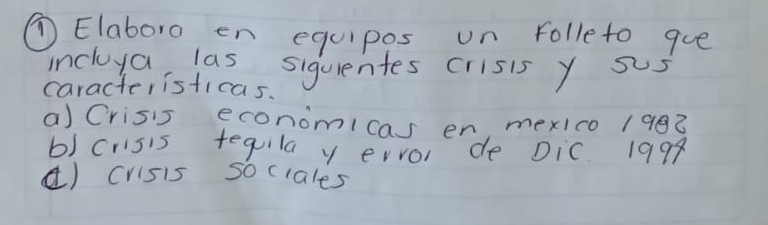 ① Elaboro en equipos un folleto que
incluya las siguientes crisis y sus
características.
a) Crisis económicas en mexico 1982
b) crisis tequila y error de Dic. 1994
c) crisis sociales